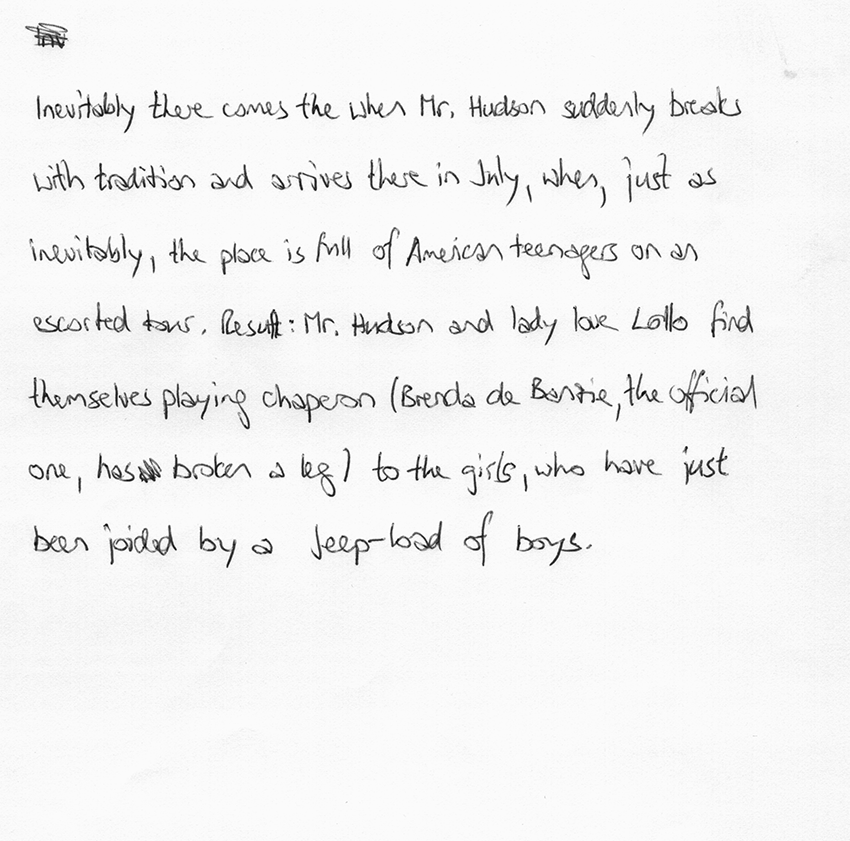 Inevitably there comes the when Mr. Hudson suddenly breaks
with tradition and arrives there in July, when, just as
inevitably, the place is full of American teenagers on an
escorted tour. Result: Mr. Hudson and lady love Lollo find
themselves playing chaperon (Brenda de Banzie, the official
one, has broken a leg) to the girls, who have just
been joided by a Jeep-load of boys.